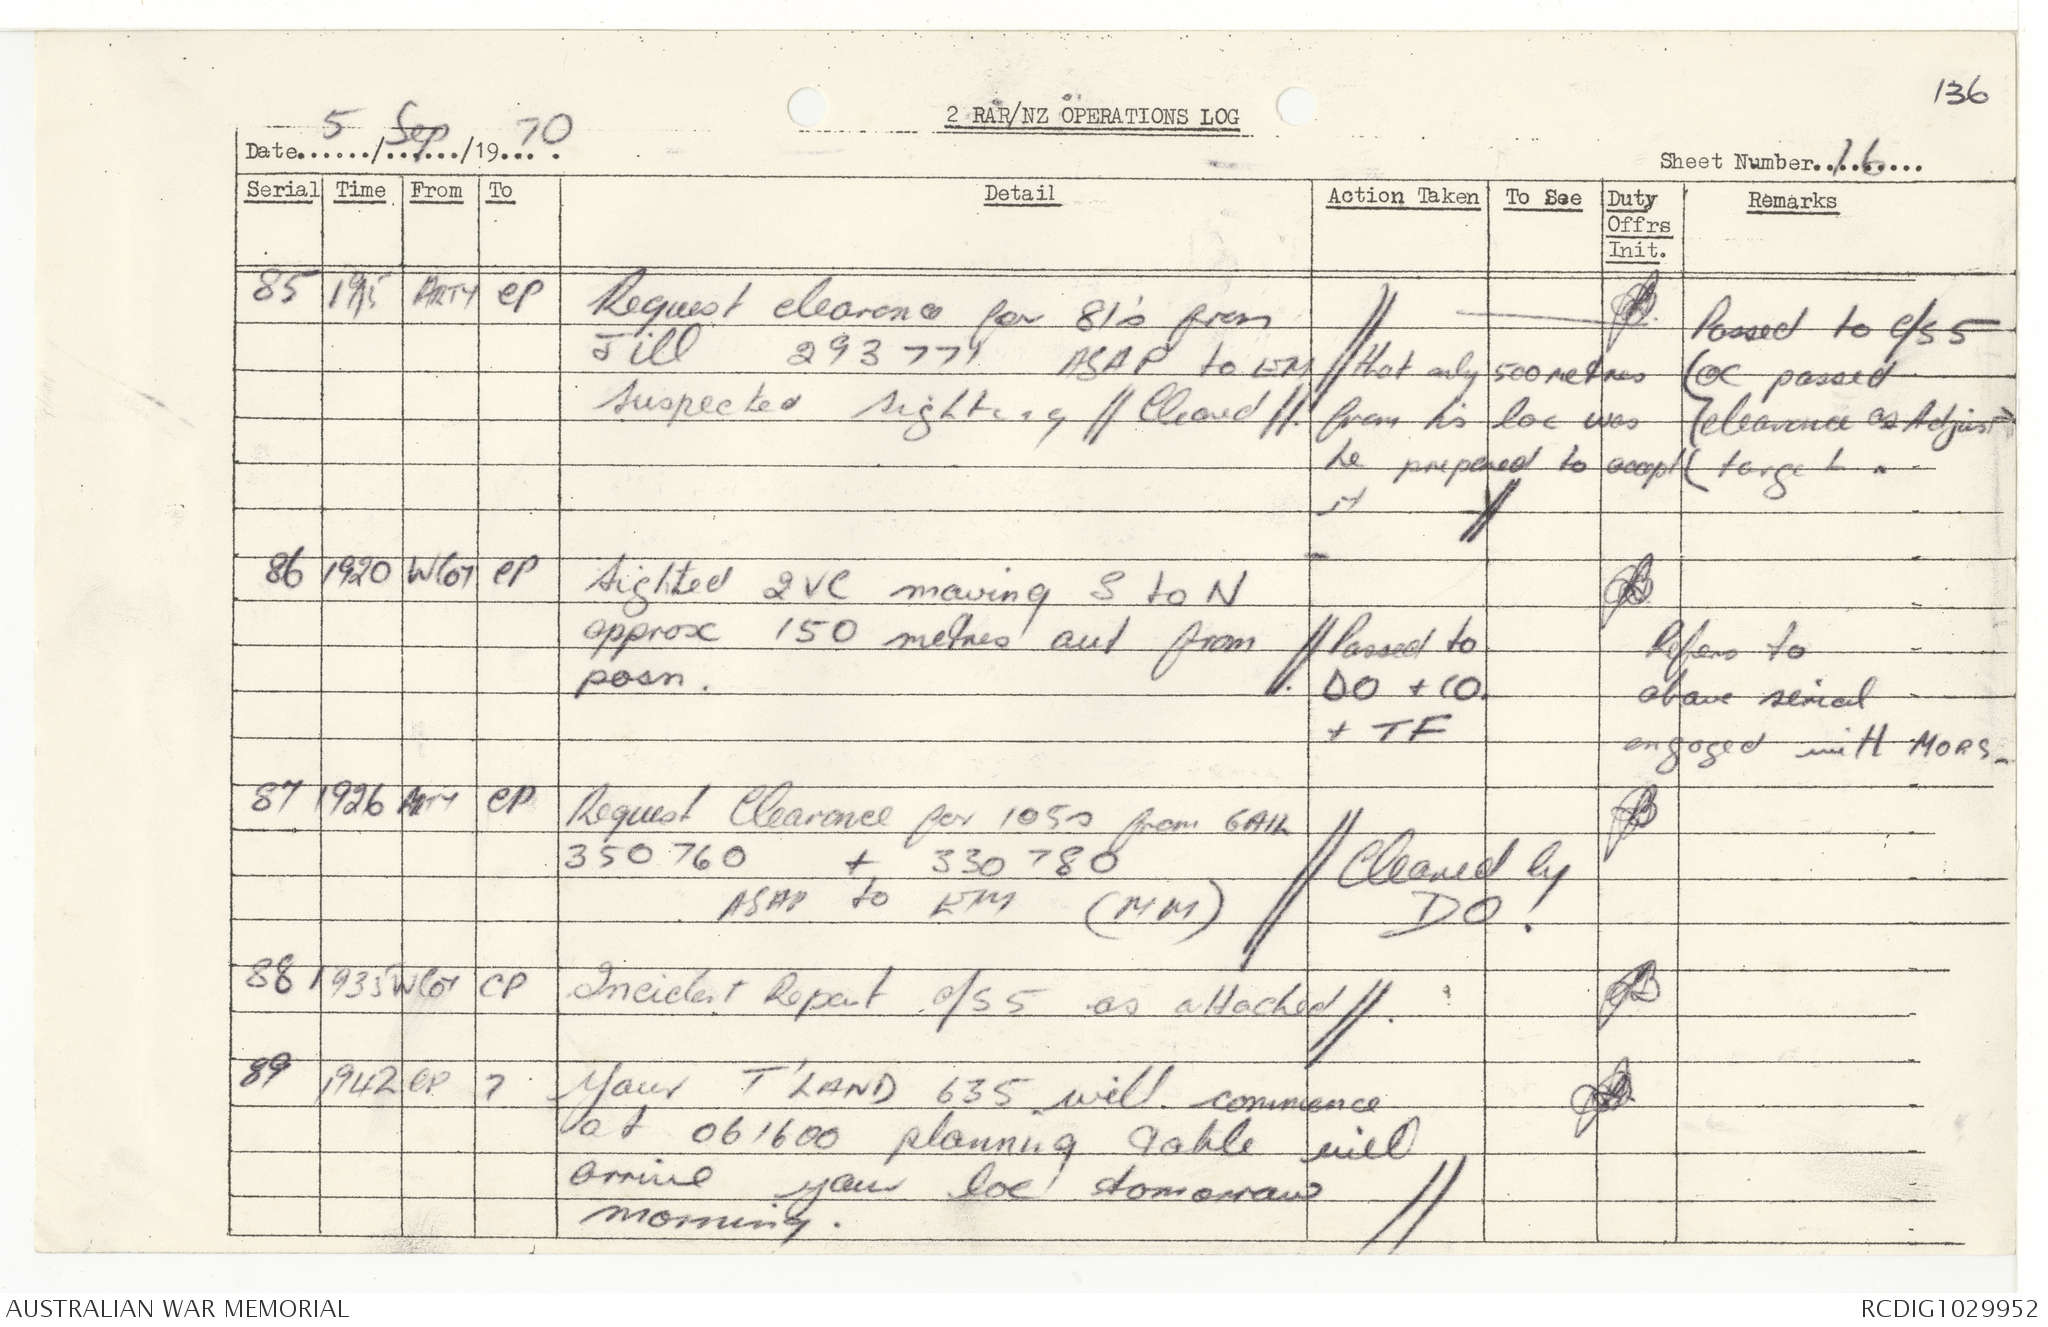 136
2 RAR/NZ OPERATIONS LOG
Date 5/Sep/1970
Sheet Number 16
Serial Time From To Detail Action Taken To See Duty Offrs Init. Remarks
85 1915 ARTY CP
Request clearance for 81's from
Jill 293771 ASAP to ETM
suspected sighting // Cleared //.
// that only 500 metres
from his loc was
he prepared to accept
it //
Passed to c/s 5
(OC passed
(clearance as Adjust
( target.
86 1920 WCOY CP
Sighted 2VC moving S to N
approx 150 metres out from
posn. //.
Passed to
DO + CO.
+ TF
Refers to
above serial
engaged with MORS
87 1926 ARTY CP
Request Clearance for 105s from GAIL
350 760 + 330 780
ASAP to ETM (MM) //
Cleared by
DO!
88 1935 WCOY CP
Incident Report c/s 5 as attached //.
89 1942 CP 7
Your T'LAND 635 will commence
at 061600 planning table will
arrive your loc tomorrow
morning. //
AUSTRALIAN WAR MEMORIAL
RCDIG1029952